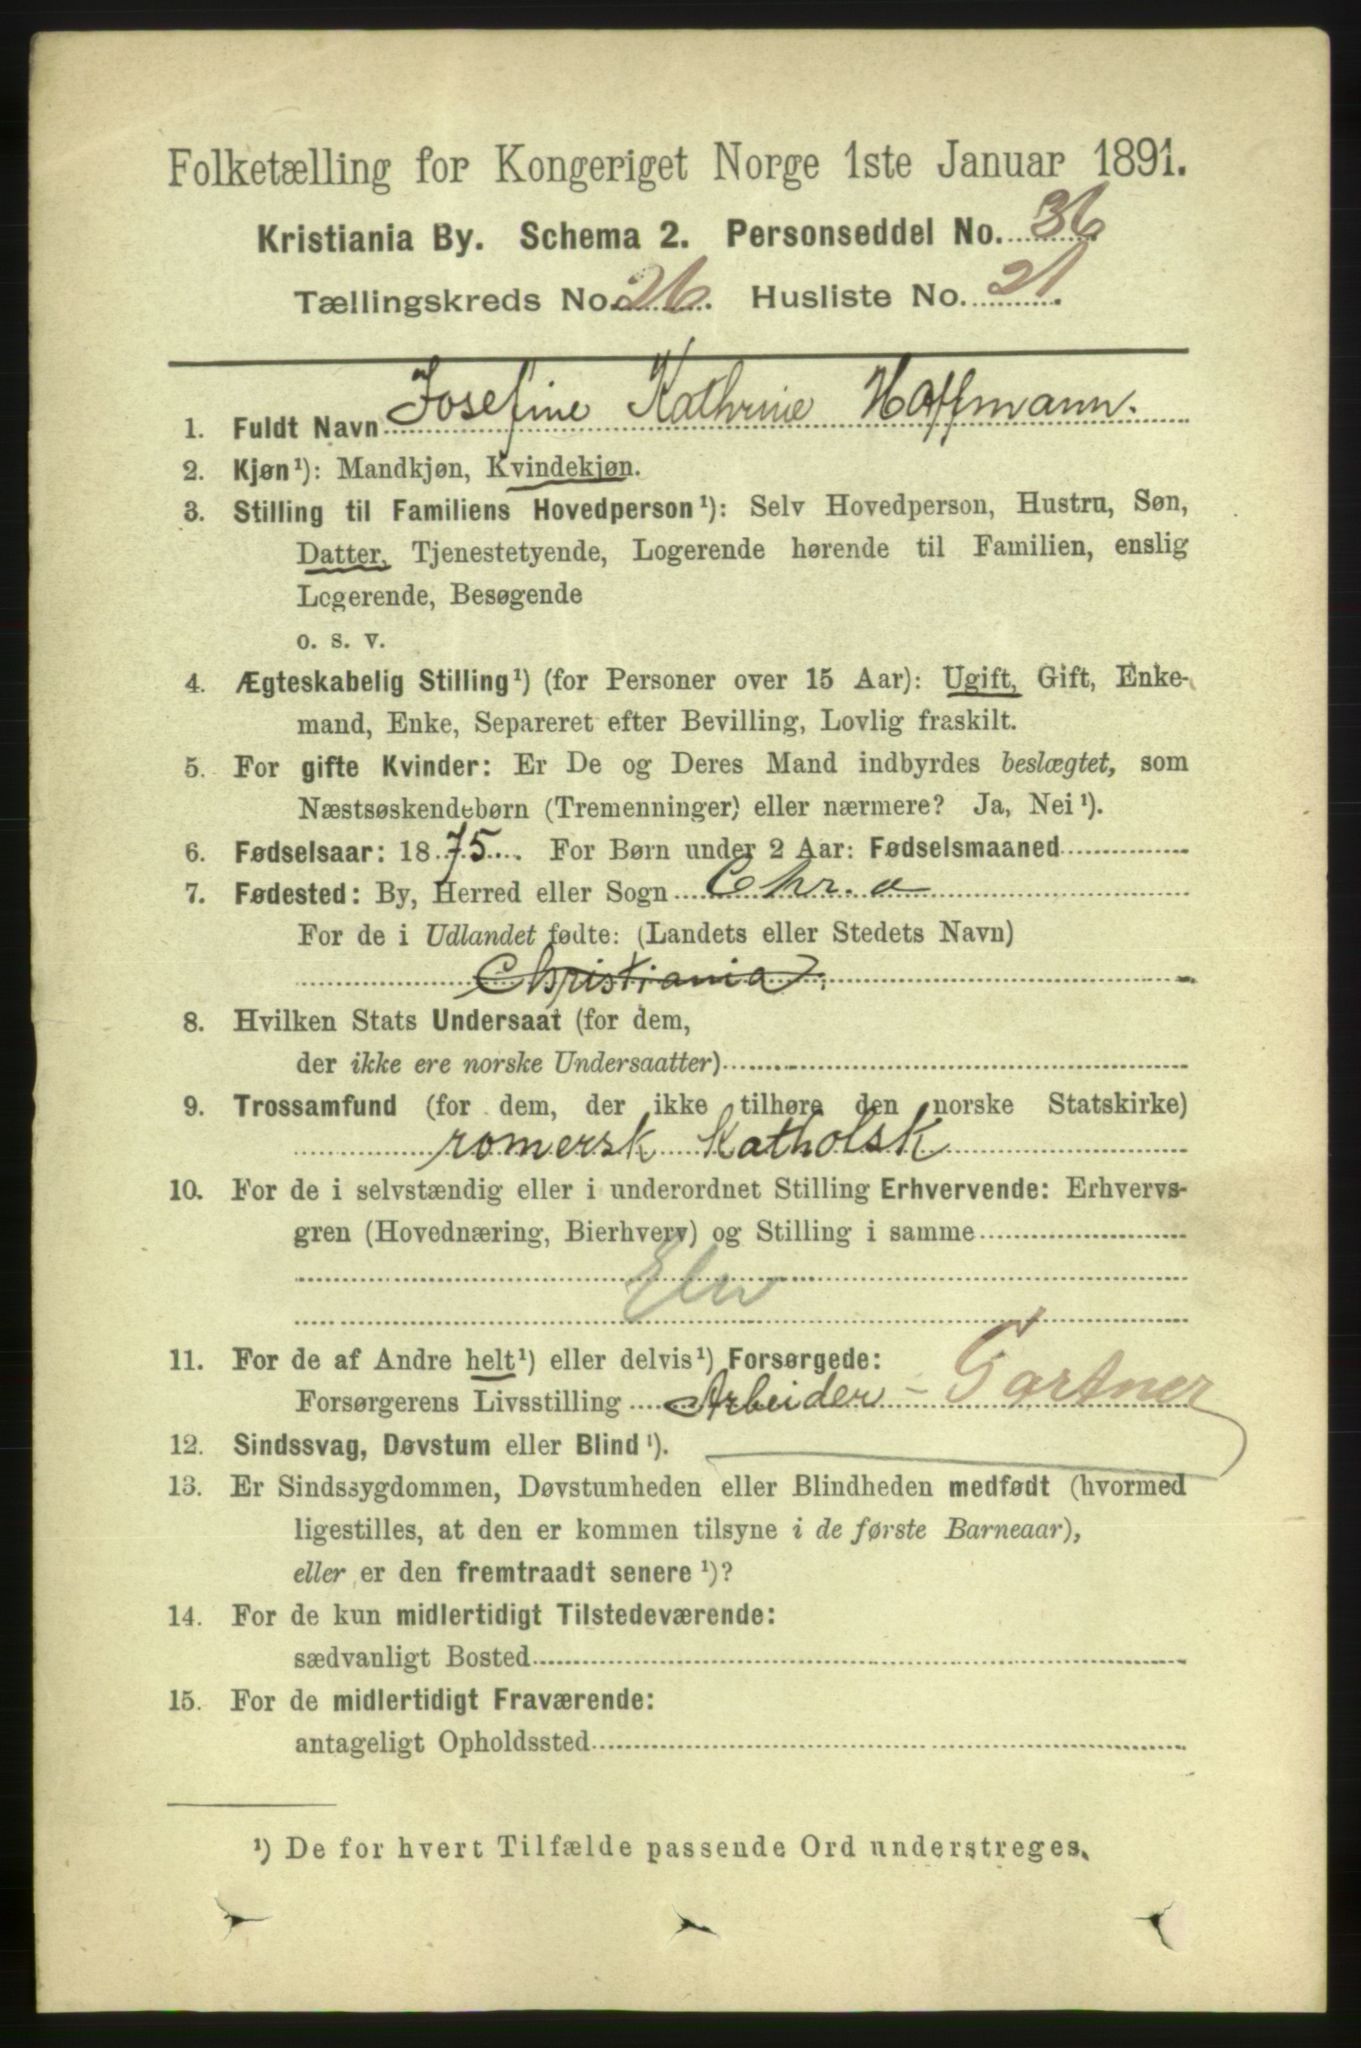 Folketælling for Kongeriget Norge 1ste Januar 1891.
Kristiania By. Schema 2. Personseddel No. 36
Tællingskreds No. 26. Husliste No. 21.
1. Fuldt Navn Josefine Kathrine Hoffmann.
2. Kjøn¹): Mandkjøn, Kvindekjøn.
3. Stilling til Familiens Hovedperson¹): Selv Hovedperson, Hustru, Søn,
Datter, Tjenestetyende, Logerende hørende til Familien, enslig
Logerende, Besøgende
o. s. v.
4. Ægteskabelig Stilling¹) (for Personer over 15 Aar): Ugift, Gift, Enke-
mand, Enke, Separeret efter Bevilling, Lovlig fraskilt.
5. For gifte Kvinder: Er De og Deres Mand indbyrdes beslægtet, som
Næstsøskendebørn (Tremenninger) eller nærmere? Ja, Nei¹).
6. Fødselsaar: 1875. For Børn under 2 Aar: Fødselsmaaned
7. Fødested: By, Herred eller Sogn Chr.a
For de i Udlandet fødte: (Landets eller Stedets Navn)
Christiania.
8. Hvilken Stats Undersaat (for dem,
der ikke ere norske Undersaatter)
9. Trossamfund (for dem, der ikke tilhøre den norske Statskirke)
romersk Katholsk
10. For de i selvstændig eller i underordnet Stilling Erhvervende: Erhvervs-
gren (Hovednæring, Bierhverv) og Stilling i samme
Elev
11. For de af Andre helt¹) eller delvis¹) Forsørgede:
Forsørgerens Livsstilling Arbeider - Gartner
12. Sindssvag, Døvstum eller Blind¹).
13. Er Sindssygdommen, Døvstumheden eller Blindheden medfødt (hvormed
ligestilles, at den er kommen tilsyne i de første Barneaar),
eller er den fremtraadt senere¹)?
14. For de kun midlertidigt Tilstedeværende:
sædvanligt Bosted
15. For de midlertidigt Fraværende:
antageligt Opholdssted
¹) De for hvert Tilfælde passende Ord understreges.